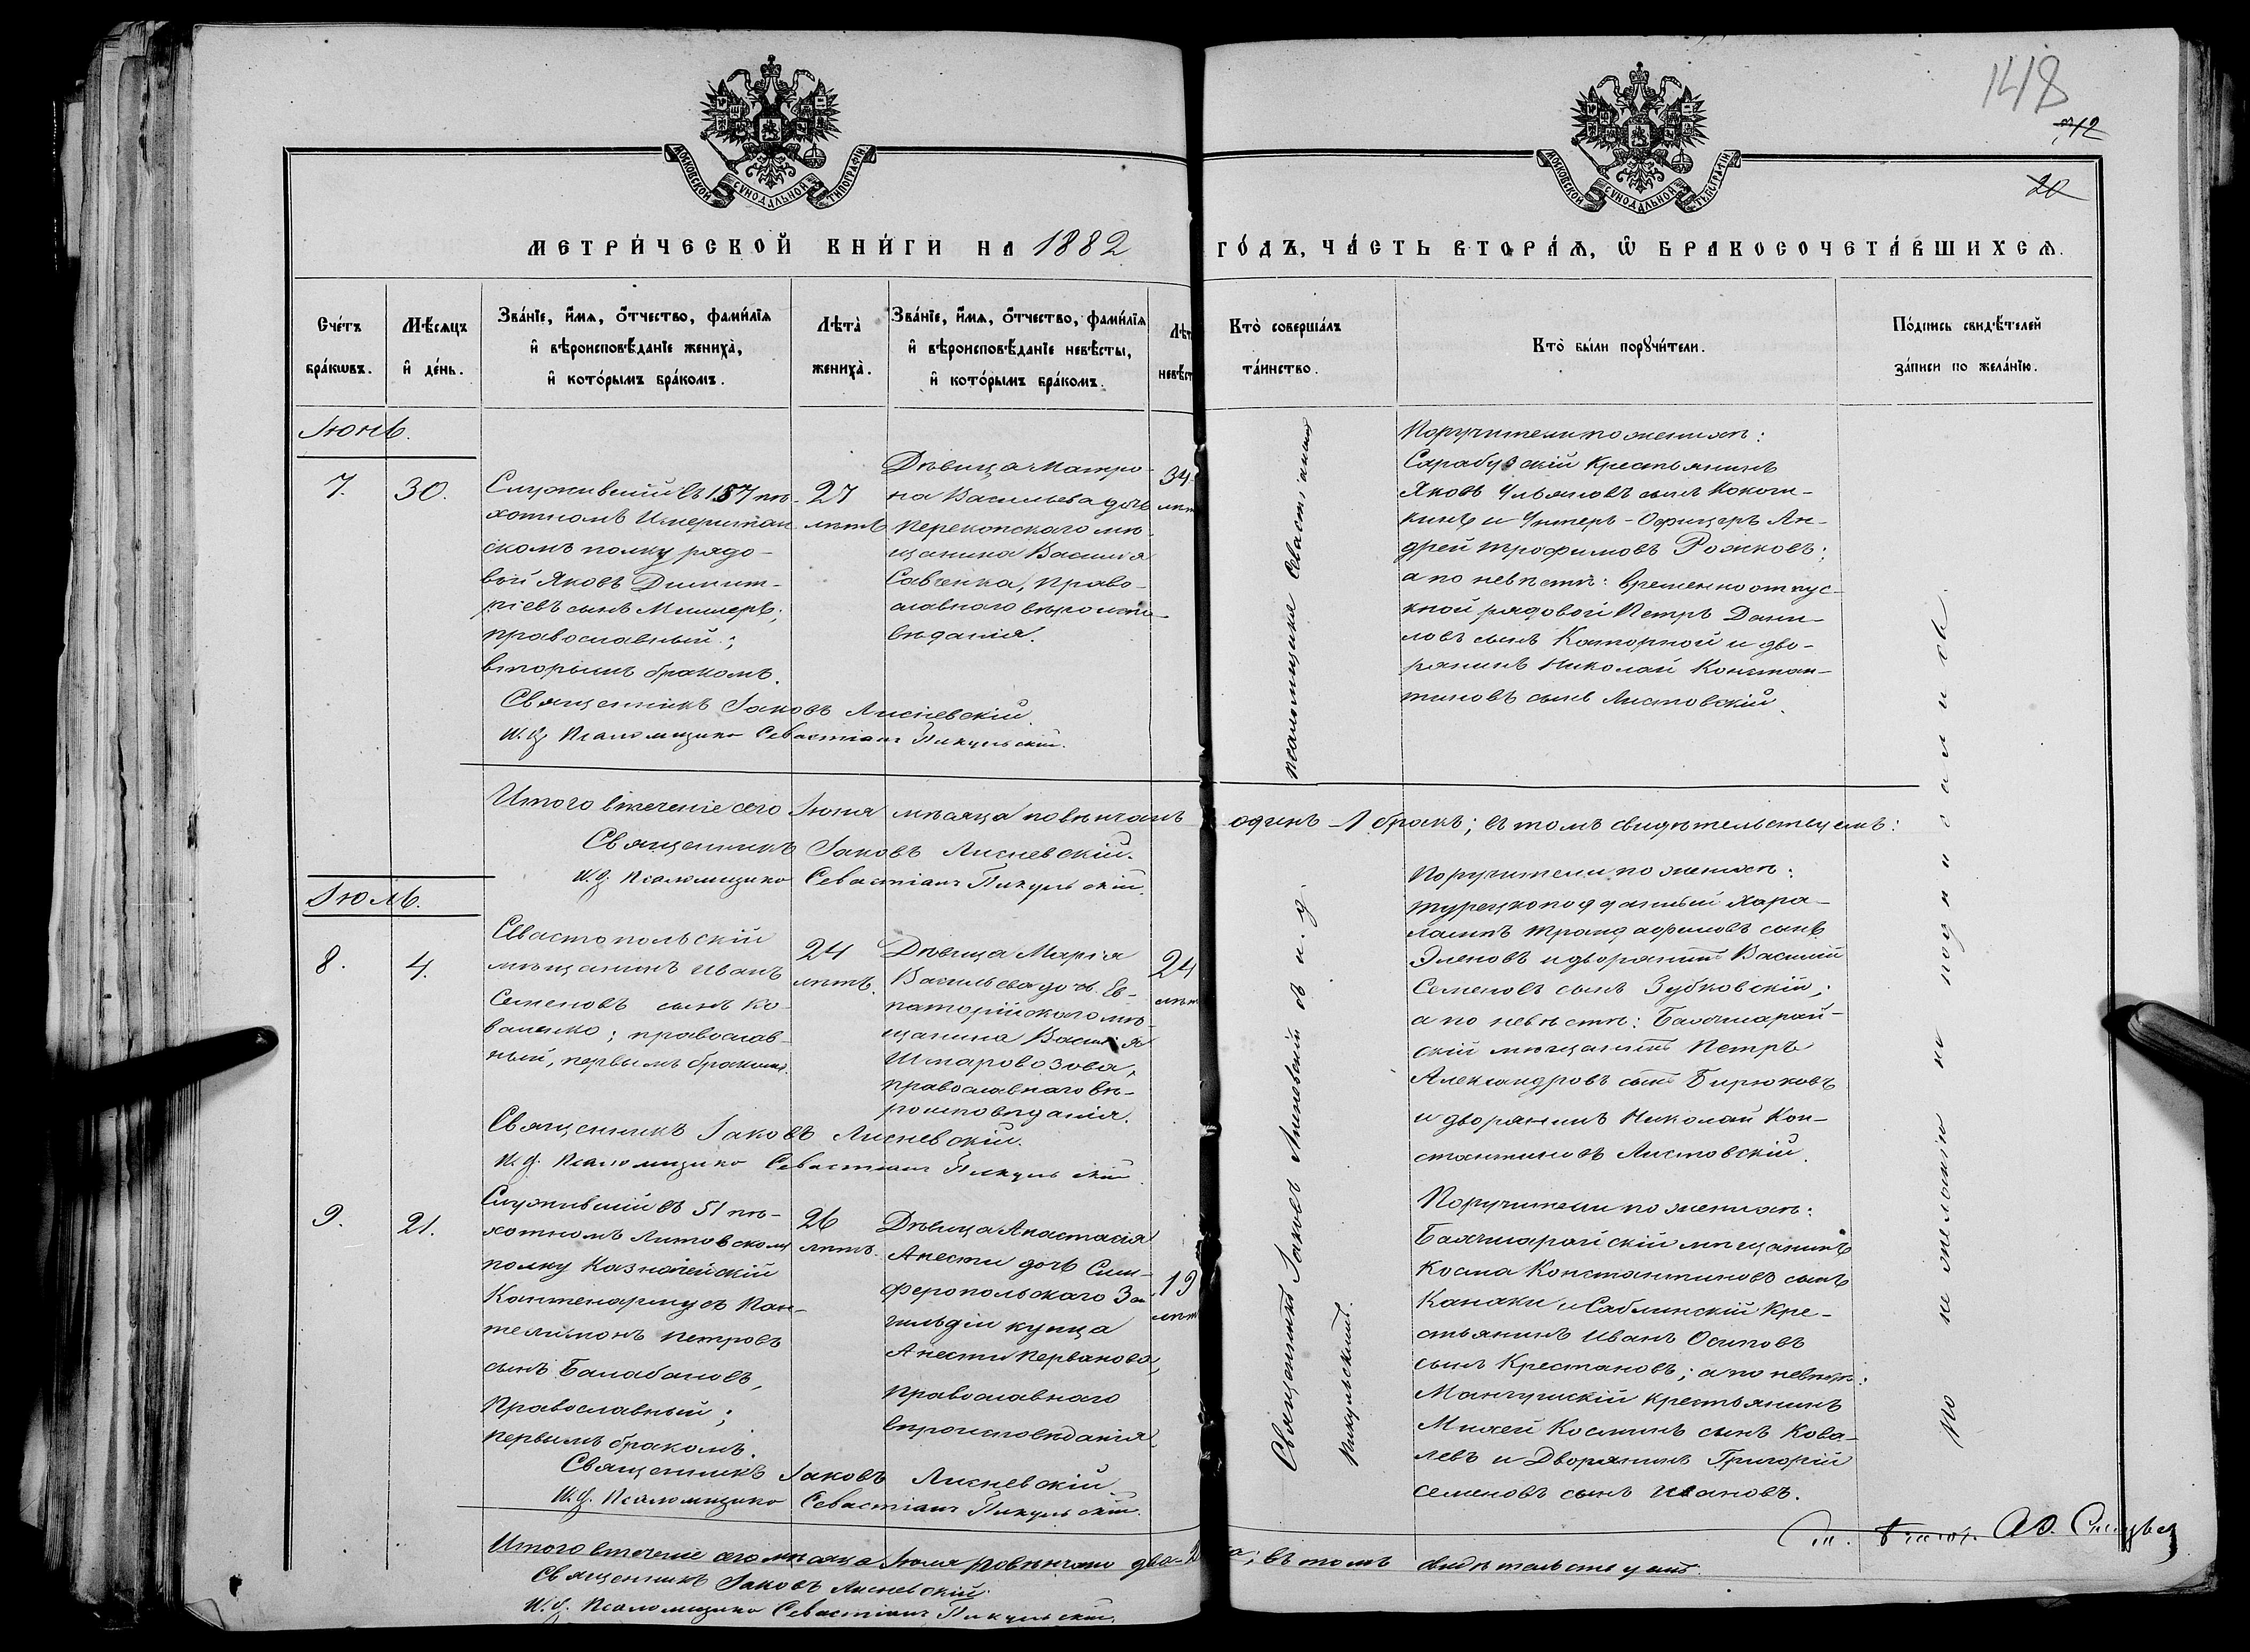 148
712
20
МОСКОВСКОЙ СѴНОДАЛЬНОЙ ТИПОГРАФІИ
МОСКОВСКОЙ СѴНОДАЛЬНОЙ ТИПОГРАФІИ
МЕТРИ́ЧЕСКОЙ КНИ́ГИ НА 1882 ГО́ДЪ, ЧА́СТЬ ВТОРА́Ѧ, Ѡ БРАКОСОЧЕТА́ВШИХСѦ.
Сче́тъ бра́кѡвъ.
Мѣ́сяцъ и҆ де́нь.
Зва́нїе, и҆́мѧ, ѻ҆́тчество, фами́лїѧ
и҆ вѣроисповѣ́данїе жениха̀,
и҆ кото́рымъ бра́комъ.
Лѣта̀
жениха̀.
Зва́нїе, и҆́мѧ, ѻ҆́тчество, фами́лїѧ
и҆ вѣроисповѣ́данїе невѣ́сты,
и҆ кото́рымъ бра́комъ.
Лѣт
невѣст
Кто̀ соверша́лъ
та́инство.
Кто̀ бы́ли порꙋчи́тели.
По́дпись свидѣ́телей
за́писи по жела́нїю.
Іюнь.
7.
30.
Служившій въ 157 пѣ-
хотномъ Имеритин
скомъ полку рядо-
вой Яковъ Димит-
ріевъ сынъ Миллеръ;
православный;
вторымъ бракомъ.
27
лѣтъ
Дѣвица Матро-
на Васильева дочь
Перекопскаго мѣ-
щанина Василія
Савченка, право-
славнаго вѣроиспо-
вѣданія.
34
лѣт
Поручители по женихѣ:
Сарабузскій крестьянинъ
Яковъ Ульяновъ сынъ Кокоши-
кинъ и Унтеръ-Офицеръ Ан-
дрей Трофимовъ Рожковъ;
а по невѣстѣ: временноотпус-
кной рядовой Петръ Дани-
ловъ сынъ Каторной и дво-
рянинъ Николай Констан-
тиновъ сынъ Листовскій.
Священникъ Іаковъ Лисневскій.
И. д. Псаломщика Севастіанъ Пикульскій.
Итого втеченіе сего Іюня мѣсяца повѣнчанъ одинъ -1 бракъ; въ томъ свидѣтельствуемъ:
Священникъ Іаковъ Лисневскій.
И. д. Псаломщика Севастіанъ Пикульскій.
Іюль.
8.
4.
Севастопольскій
мѣщанинъ Иванъ
Семеновъ сынъ Ко-
валенко; православ-
ный, первымъ бракомъ.
24
лѣтъ.
Дѣвица Марія
Васильева дочь Ев-
паторійскаго мѣ-
щанина Василія
Шпаровозова,
православнаго вѣ-
роисповѣданія.
24
лѣт
Поручители по женихѣ:
турецкоподданный Хара-
лампъ Трандафиловъ сынъ
Эленовъ и дворянинъ Василій
Семеновъ сынъ Зубковскій;
а по невѣстѣ: Бахчисарай-
скій мѣщанинъ Петръ
Александровъ сынъ Бирюковъ
и дворянинъ Николай Кон-
стантиновъ Листовскій.
Священникъ Іаковъ Лисневскій.
И. д. Псаломщика Севастіанъ Пикульскій.
9.
21.
Служившій въ 51 пѣ-
хотномъ Литовскомъ
полку Казначейскій
Каптенармусъ Пан-
телимонъ Петровъ
сынъ Балабановъ,
Православный;
первымъ бракомъ.
26
лѣтъ.
Дѣвица Анастасія
Анести дочь Сим-
феропольскаго 3ей
гильдіи купца
Анести Перванова,
православнаго
вѣроисповѣданія.
19
лѣт
Поручители по женихѣ:
Бахчисарайскій мѣщанинъ
Косма Константиновъ сынъ
Канаки и Саблинскій кре-
стьянинъ Иванъ Осиповъ
сынъ Крестановъ; а по невѣстѣ:
Мангушскій крестьянинъ
Михей Косминъ сынъ Кова-
левъ и Дворянинъ Григорій
Семеновъ сынъ Ивановъ.
Священникъ Іаковъ Лисневскій
И. д. Псаломщика Севастіанъ Пикульскій.
Священникъ Іаковъ Лисневскій съ и. д. псаломщика Севастіаномъ
Пикульскимъ.
По не желанію не подписались.
Итого втеченіе сего мѣсяца Іюля повѣнчано два-2 ; въ томъ свидѣтельствуемъ.
Священникъ Іаковъ Лисневскій.
И. д. Псаломщика Севастіанъ Пикульскій.